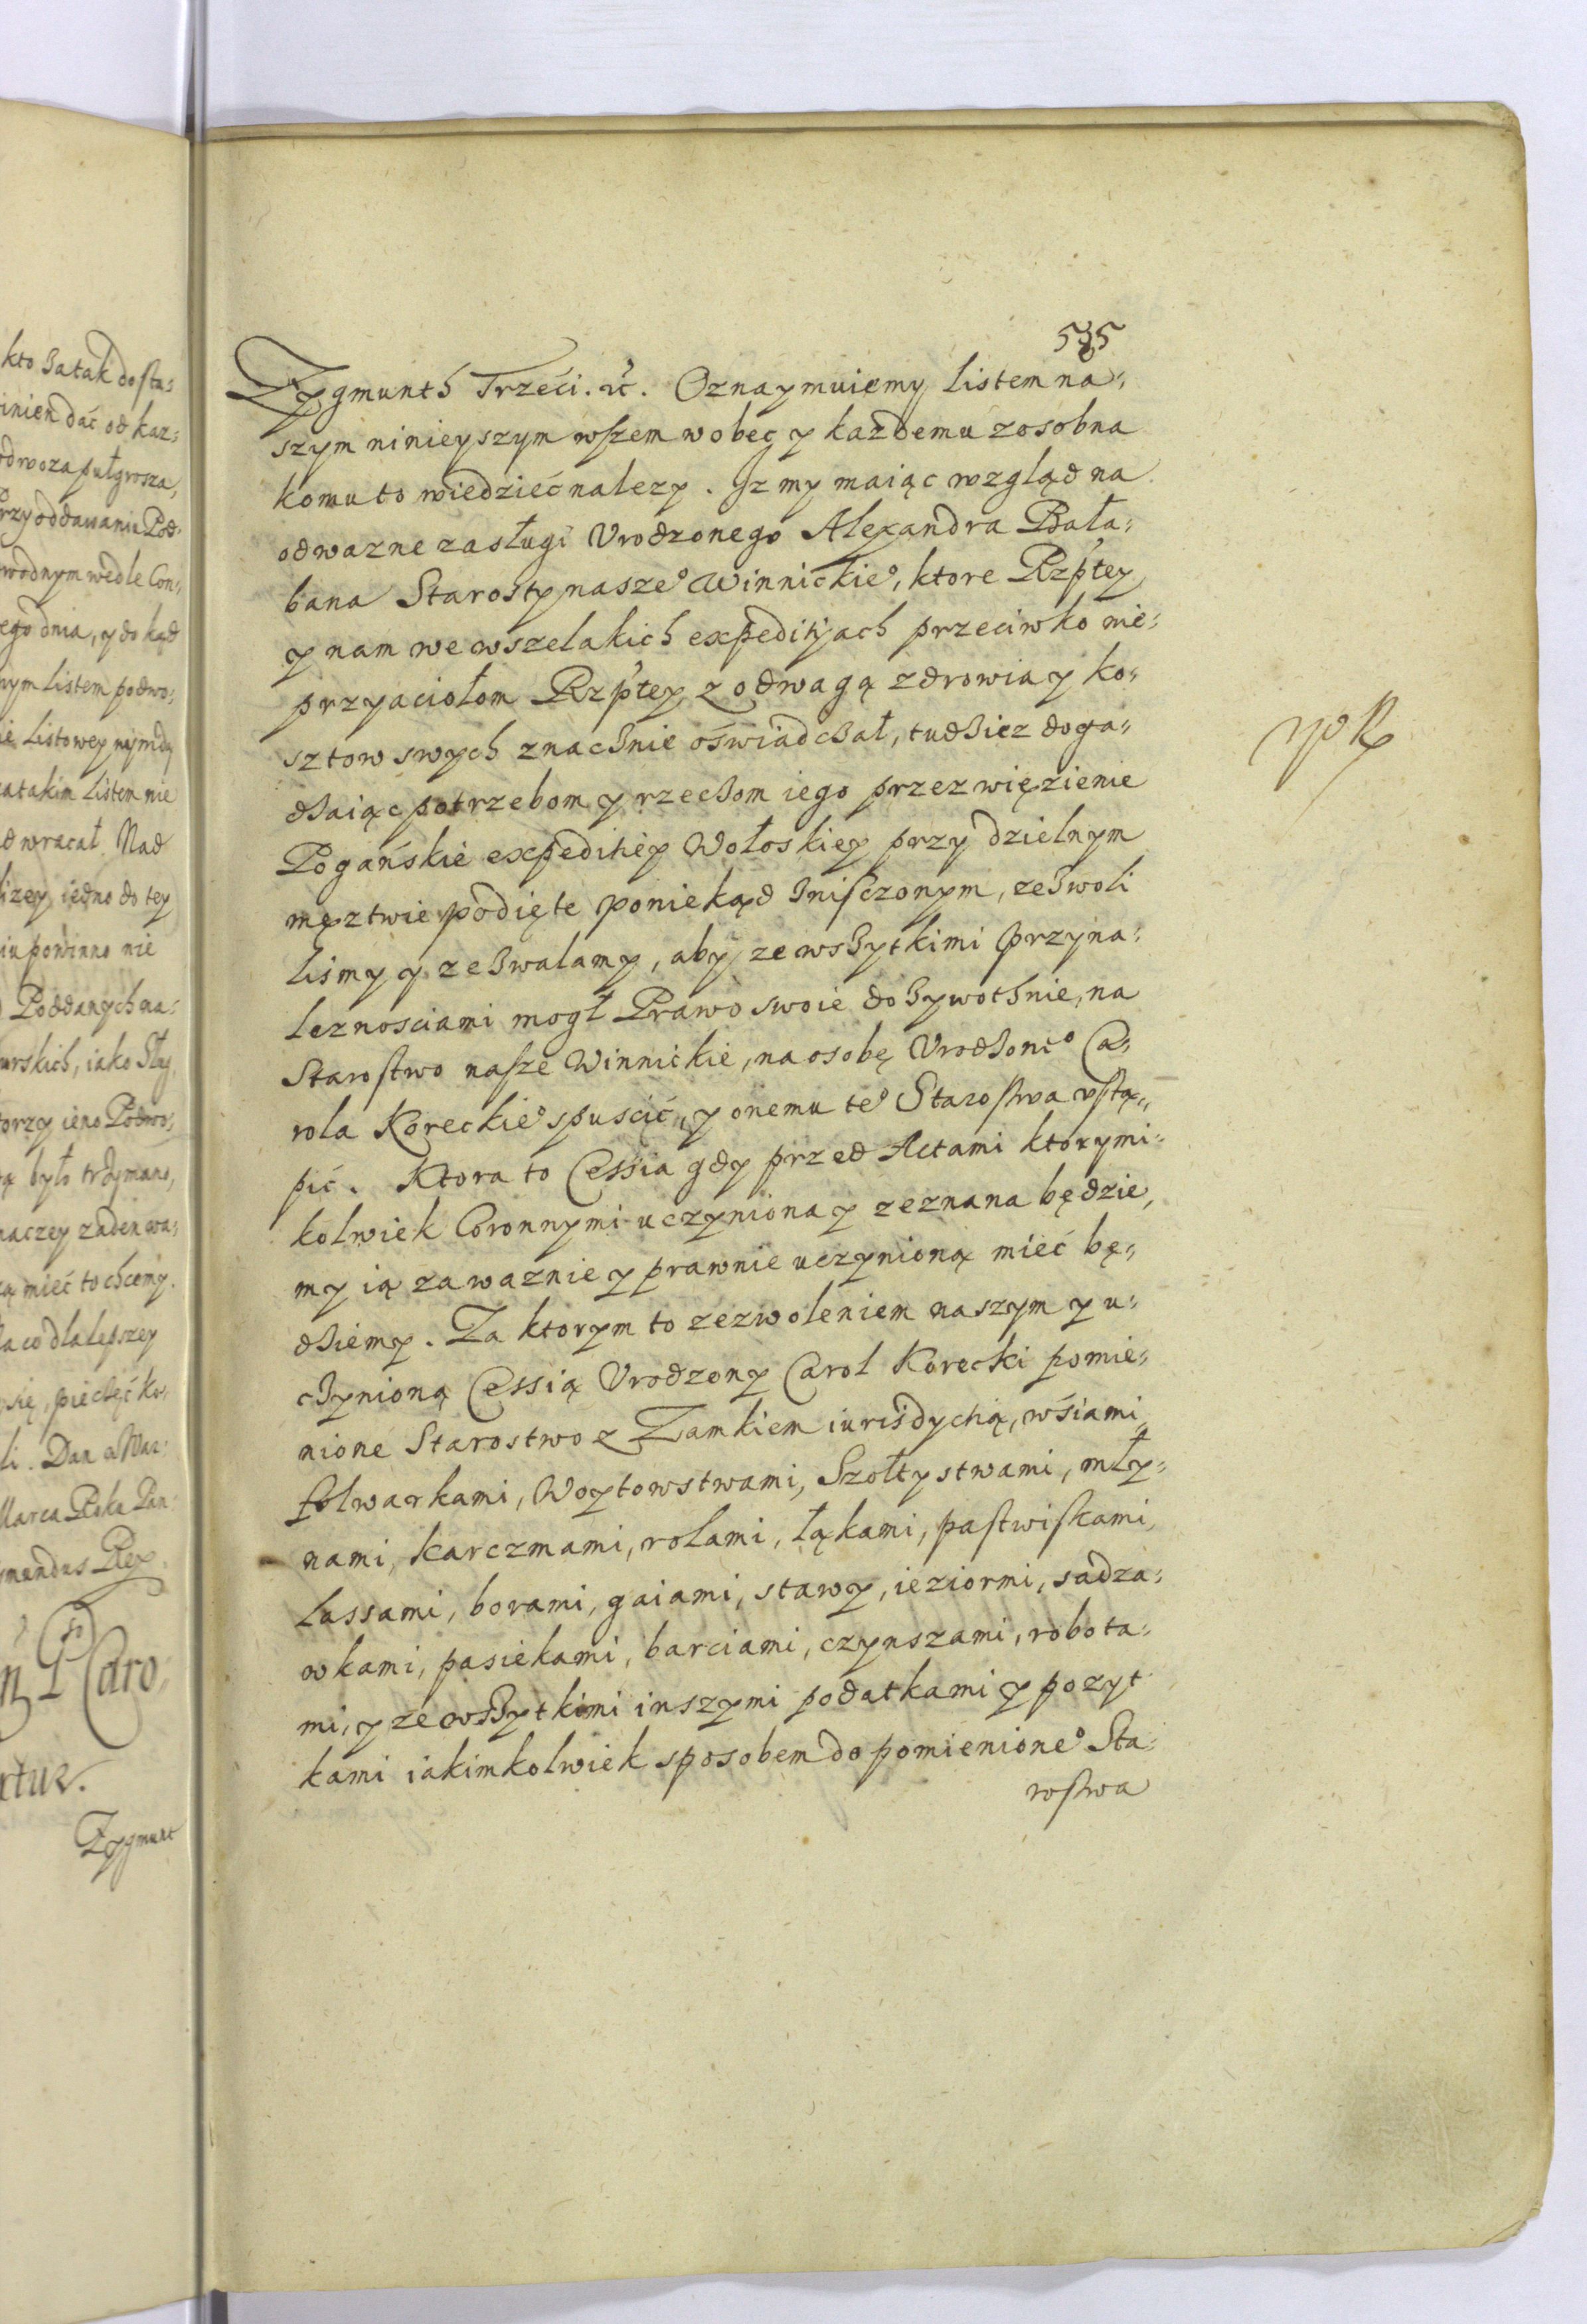 kto za tak dosta:
inien dać od kaz:
odwoza pułgrosza,
Przy oddawaniu Pod:
wodnym wedle Con:
ego dnia, y do kąd
nym listem podwo:
ie Listowey
za takim listem nie
d wracał. Nad
lizey iedno do tey
iu powinno nie
Poddanych na:
urskich, iako
torzy ieno Podwo:
ą było trzymano,
naczey zaden
ą mieć to chcemy.
a co dla lepszey
się, pieczęć ko:
li. Dan w War:
Marca Roku Pan:
mundus Rex
Caro:
ntur.
Zygmunt
535
Zygmunth Trzeci. &c. Oznaymuiemy listem na:
szym ninieyszym wszem wobec y kazdemu zosobna
komu to wiedzieć nalezy. Iz my maiąc wzgląd na
odwazne zasługi Vrodzonego Alexandra Bała:
bana Starosty naszeº Winnickieº, ktore Rzptey
y nam we wszelakich expeditijach przeciwko nie:
przyaciołom Rzptey z odwagą zdrowia y ko:
sztow swych znacznie oświadczał, tudziez doga:
dzaiąc potrzebom y rzeczom iego przez więzienie
Pogańskie expeditiey Wołoskiey przy dzielnym
męztwie podięte poniekąd zniszczonym, zezwoli
liśmy y zezwalamy, aby ze wszytkimi przyna:
leznosciami mogł Prawo swoie dozywothnie, na
Starostwo nasze Winnickie, na osobę Vrodzoneº Ca:
rola Koreckieº spuscić, y onemu teº Starostwa vstą:
pić. Ktora to Cessia gdy przed Actami ktorymi:
kolwiek Coronnymi uczyniona y zeznana będzie,
my ią za waznie y prawnie uczynioną mieć bę:
dziemy. Za ktorym to zezwoleniem naszym y u:
czynioną Cessią Vrodzony Carol Korecki pomie:
nione Starostwo z Zamkiem iurisdychą, wśiami
folwarkami, Woytowstwami, Szołtystwami, mły:
nami, karczmami, rolami, łąkami, pastwiskami,
lassami, borami, gaiami, stawy, ieziormi, sadza:
wkami, pasiekami, barciami, czynszami, robota:
mi, y ze wszytkimi inszymi podatkami y pozyt
kami iakimkolwiek sposobem do pomienioneº Sta:
rostwa